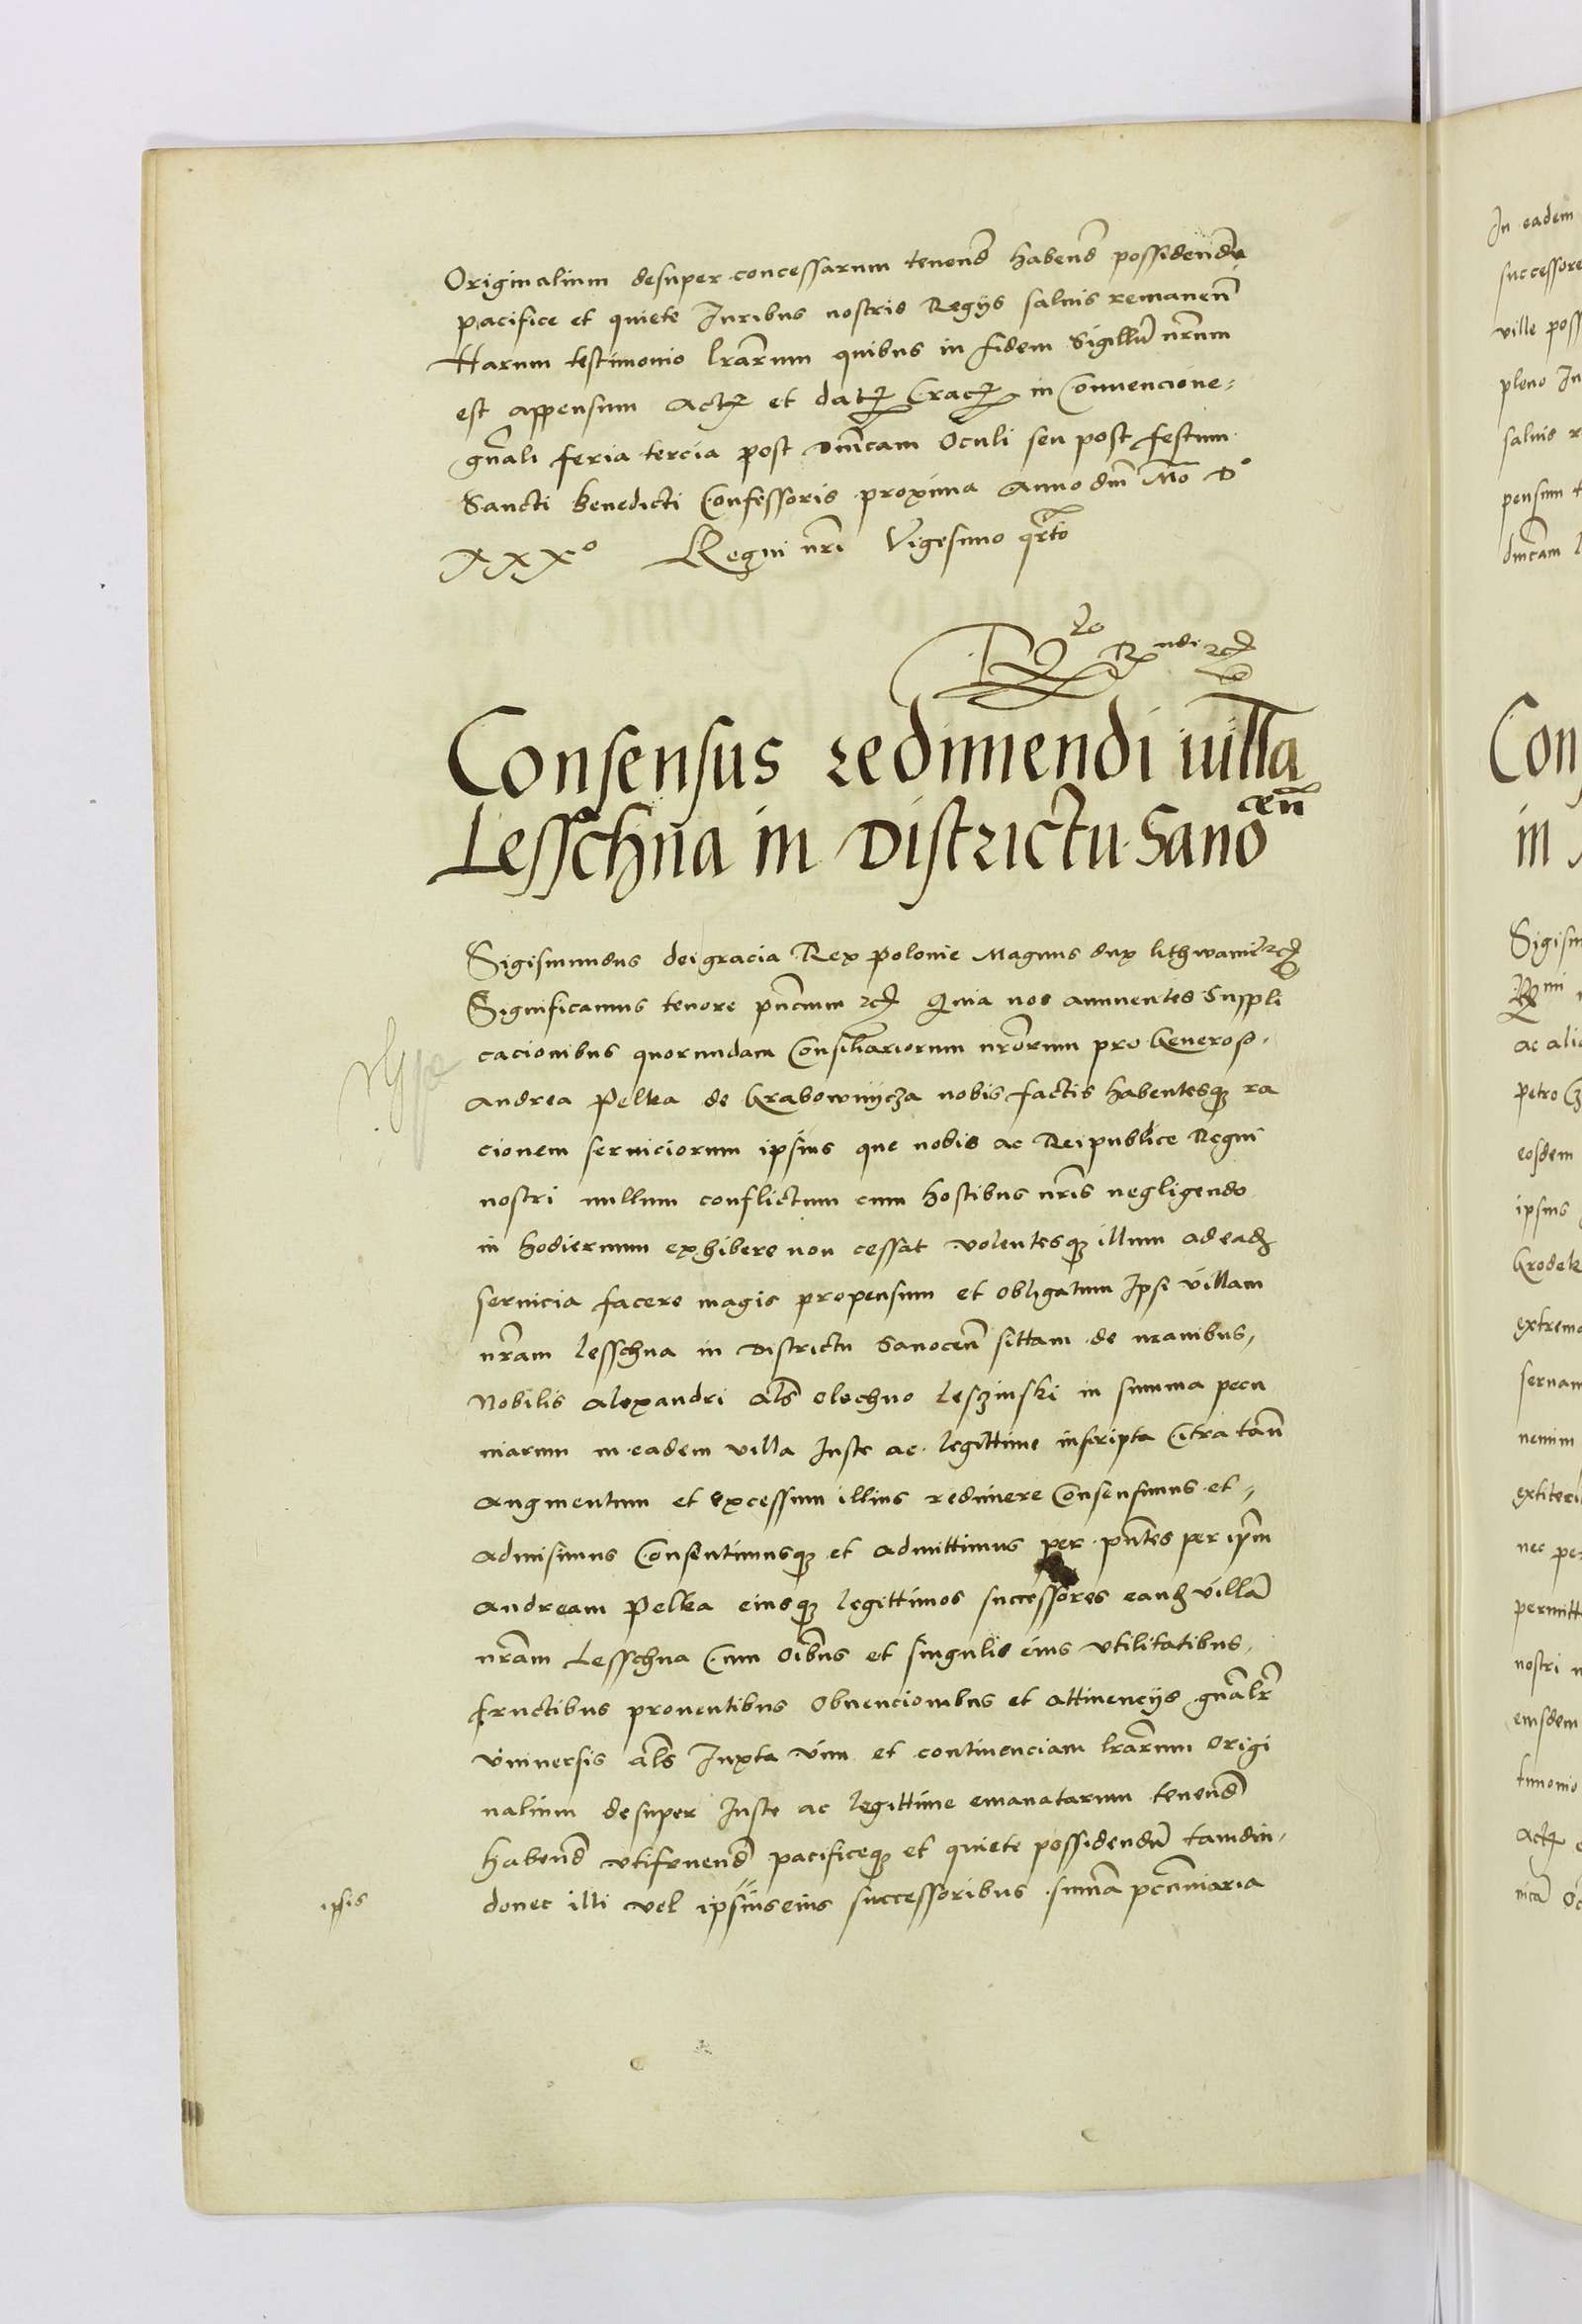 Originalium desuper concessarum tenend̄ habend̄ possidend̄
pacifice et quiete Juribus nostris Regijs saluis remanen̄
Harum testimonio lr̄arum quibus in fidem Sigillū nr̄um
est appensum Actꝝ et datꝝ Cracꝝ in Conuencione
gn̄ali feria tercia post dn̄icam Oculi seu post festum
Sancti Benedicti Confessoris proxima Anno dn̄i Mo Do
xxxo Regni nr̄i Vigesimo qr̄to
Rlo Rndi rcꝫ
Consensus redimendi uilla
Lesschna in Districtu Sanocen̄
Sigismundus dei gracia Rex polonie Magnus dux lithwanie rcꝫ
Significamus tenore pn̄cium rcꝫ Quia nos annuentes Suppli
cacionibus quorundam Consiliariorum nr̄orum pro Generoso
Andrea Pelka de Grabownycza nobis factis habentesqꝫ ra
cionem seruiciorum ipsius que nobis ac Reipublice Regni
nostri nullum conflictum cum hostibus nr̄is negligendo
in hodiernum exhibere non cessat volentesqꝫ illum ad eadꝫ
seruicia facere magis propensum et obligatum Ipsi villam
nr̄am Lesschna in Districtu Sanocen̄ sittam de manibus
Nobilis Alexandri al̄s Olechno Leszinski in summa pecu
niarum in eadem villa Juste ac legittime inscripta Citra tan̄
augmentum et excessum illius redimere Consensimus et
admisimus Consentimusqꝫ et admittimus per pn̄tes per ip̄m
Andream Pelka eiusqꝫ legittimos successores eandꝫ villā
nr̄am Lesschna Cum oībus et singulis eius vtilitatibus
fructibus prouentibus obuencionibus et attinencijs gn̄alr̄
vniuersis al̄s Juxta vim et continenciam lr̄arum Origi
nalium desuper Juste ac legittime emanatarum tenend̄
habend̄ vtifruend̄ pacificeqꝫ et quiete possidendū tamdiu
ipsis
donec illi vel ipsius eius successoribus summa pecuniaria